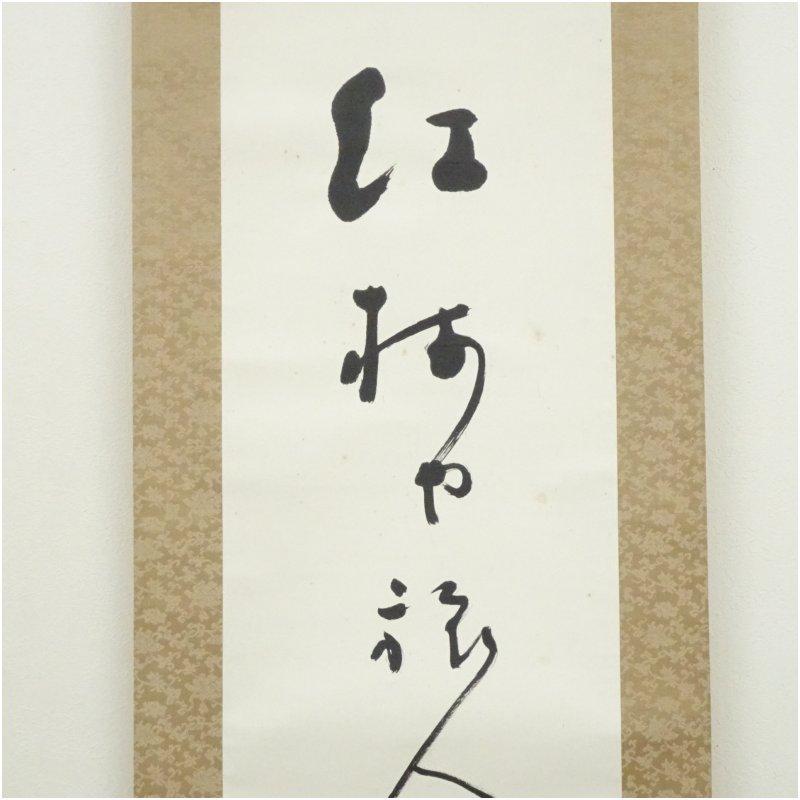 紅梅や旅人